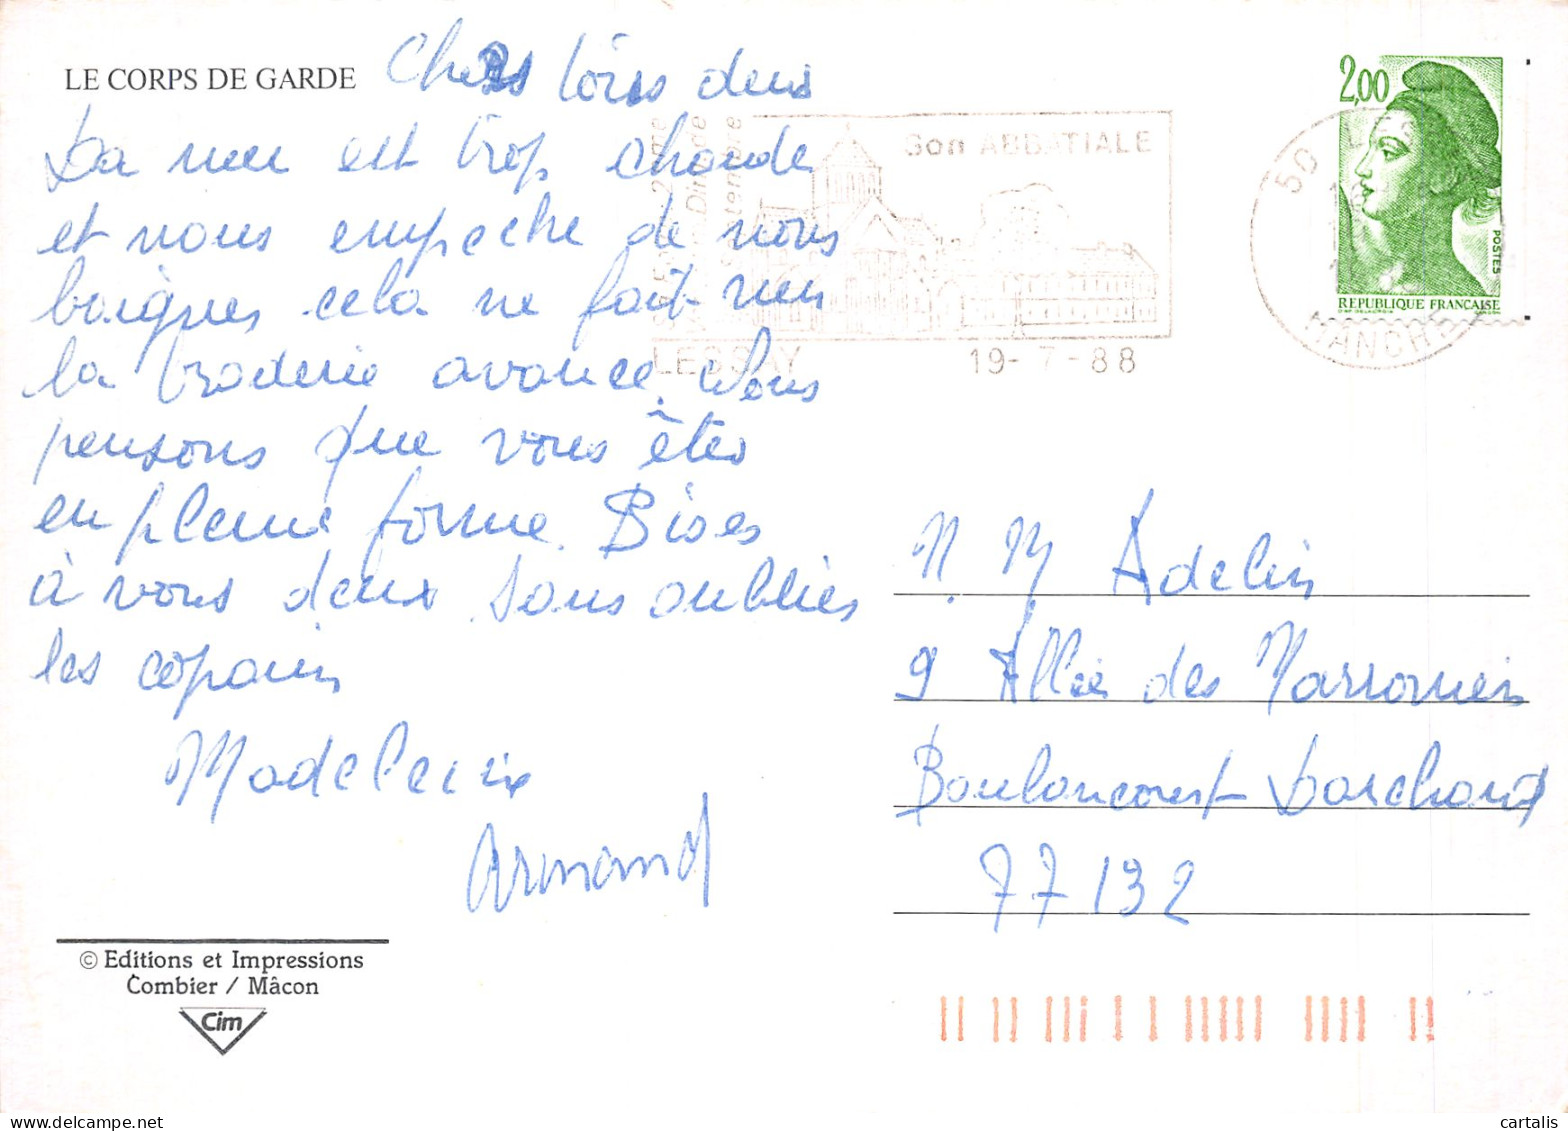 LE CORPS DE GARDE
Chers tous deux
La mer est trop chaude
et nous empeche de nous
baigner cela ne fait rien
la broderie avance. Nous
pensons que vous êtes
en pleine forme. Bises
à vous deux sans oublier
les copains
Madeleine
Armand
© Editions et Impressions
Combier / Mâcon
Cim
Son ABBATIALE
LESSAY 19-7-88
50
MANCHE
2,00
POSTES
REPUBLIQUE FRANCAISE
M. M Adelin
9 Allée des Marronniers
Boulancourt
77132